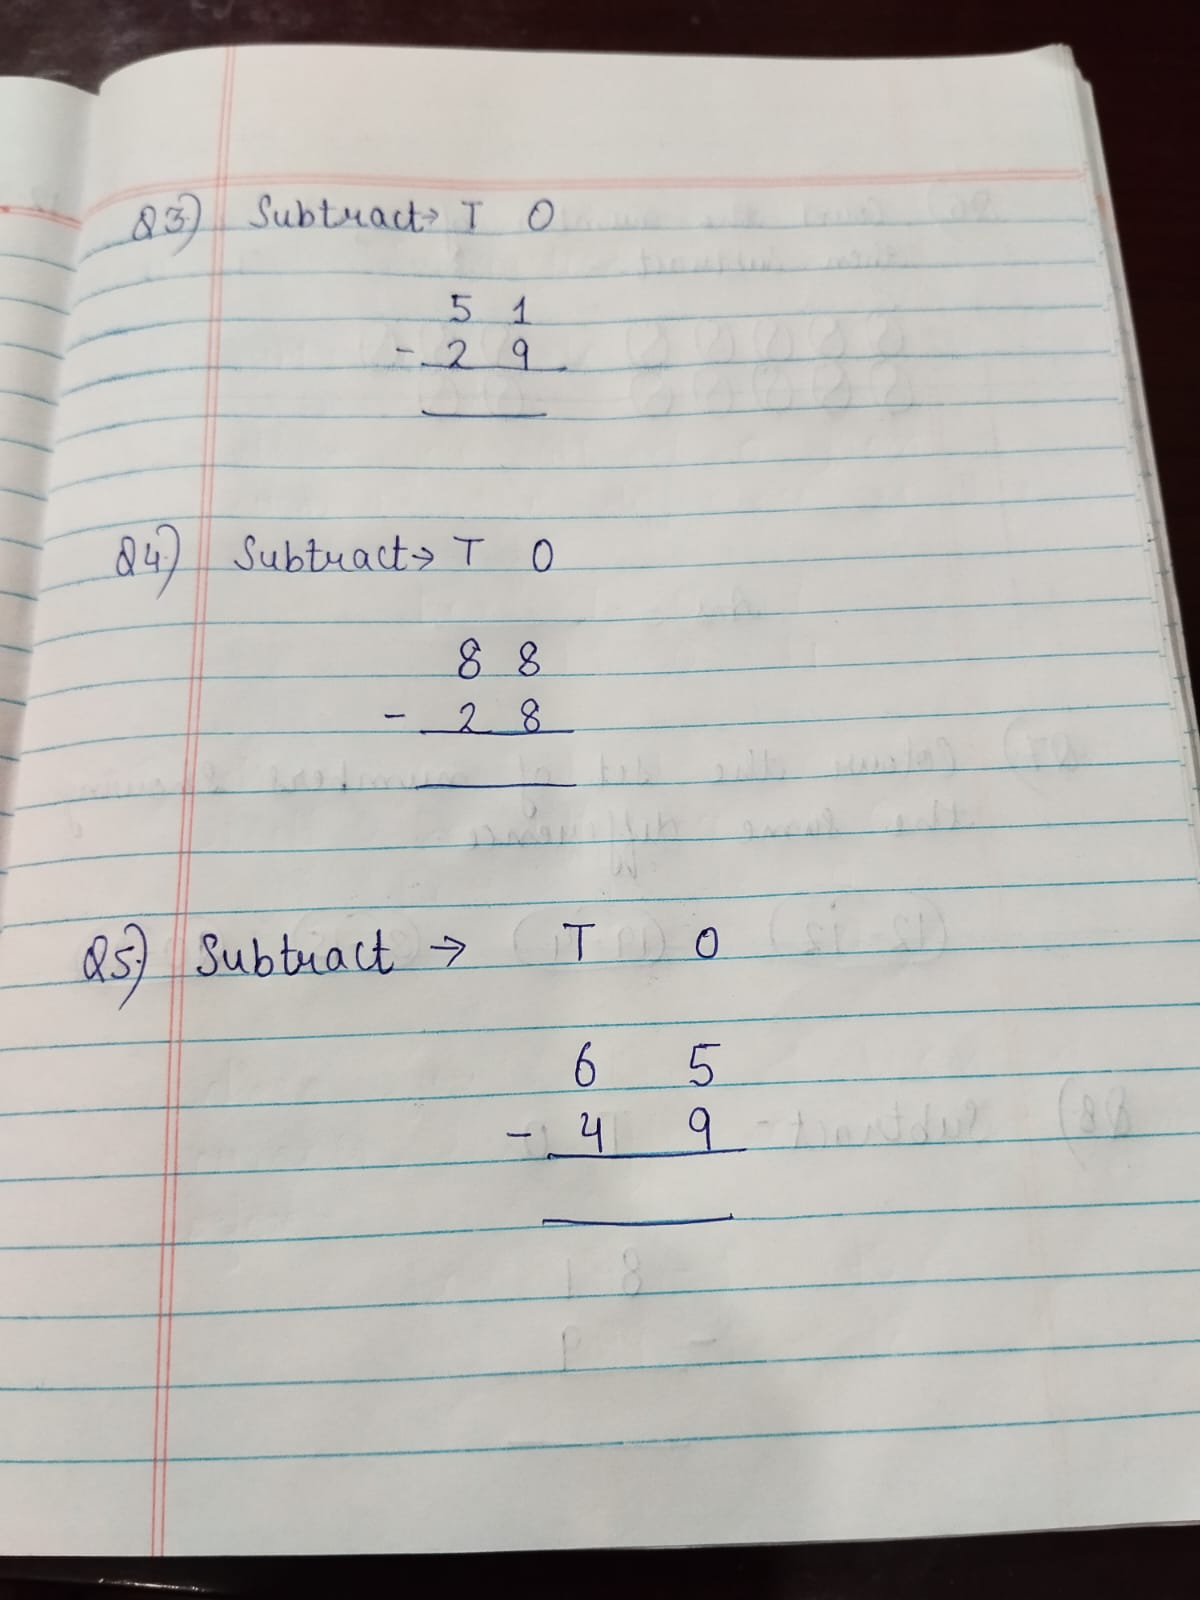 Q3) Subtract→ T O
5 1
- 2 9
Q4) Subtract→ T O
8 8
- 2 8
Q5) Subtract → T O
6 5
- 4 9